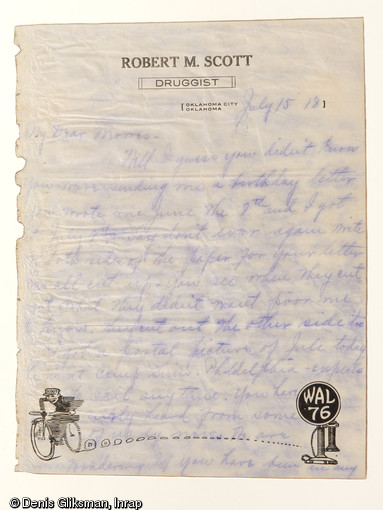 ROBERT M. SCOTT
DRUGGIST
OKLAHOMA CITY
OKLAHOMA
July 15 18
My Dear Morris-
Well I guess you didn't know
you were sending me a birthday letter
you wrote one June the 8th and I got
it don't ever again write
on both side of the paper for your letter
was all cut up. You see when they cut
out what they didn't want
cut out the other side too
a postal picture of today
Philadelphia - expects
any time. You have
heard from some
wondering if you have been in any
WAL
76
© Denis Gliksman, Inrap